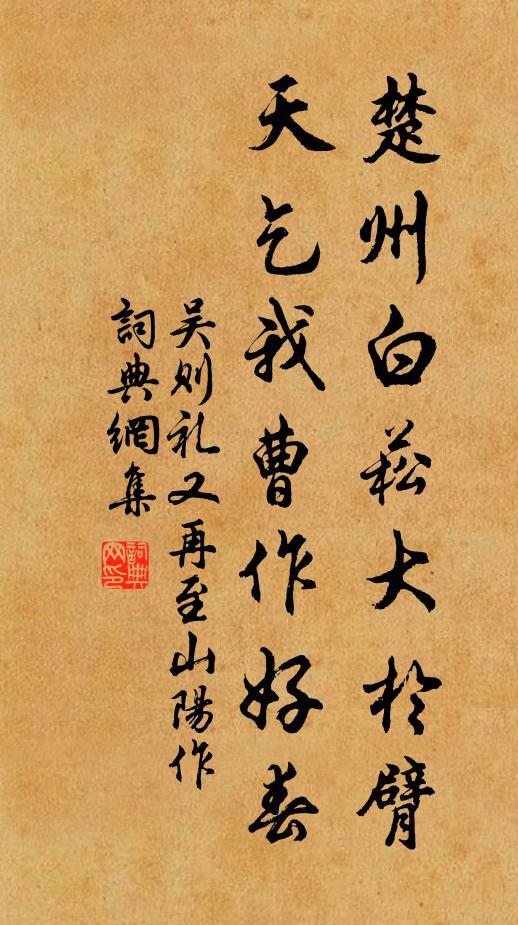 楚州白菘大於臂
天乞我曹作好春
吴则礼又再至山陽作
詞典網集
詞典網印